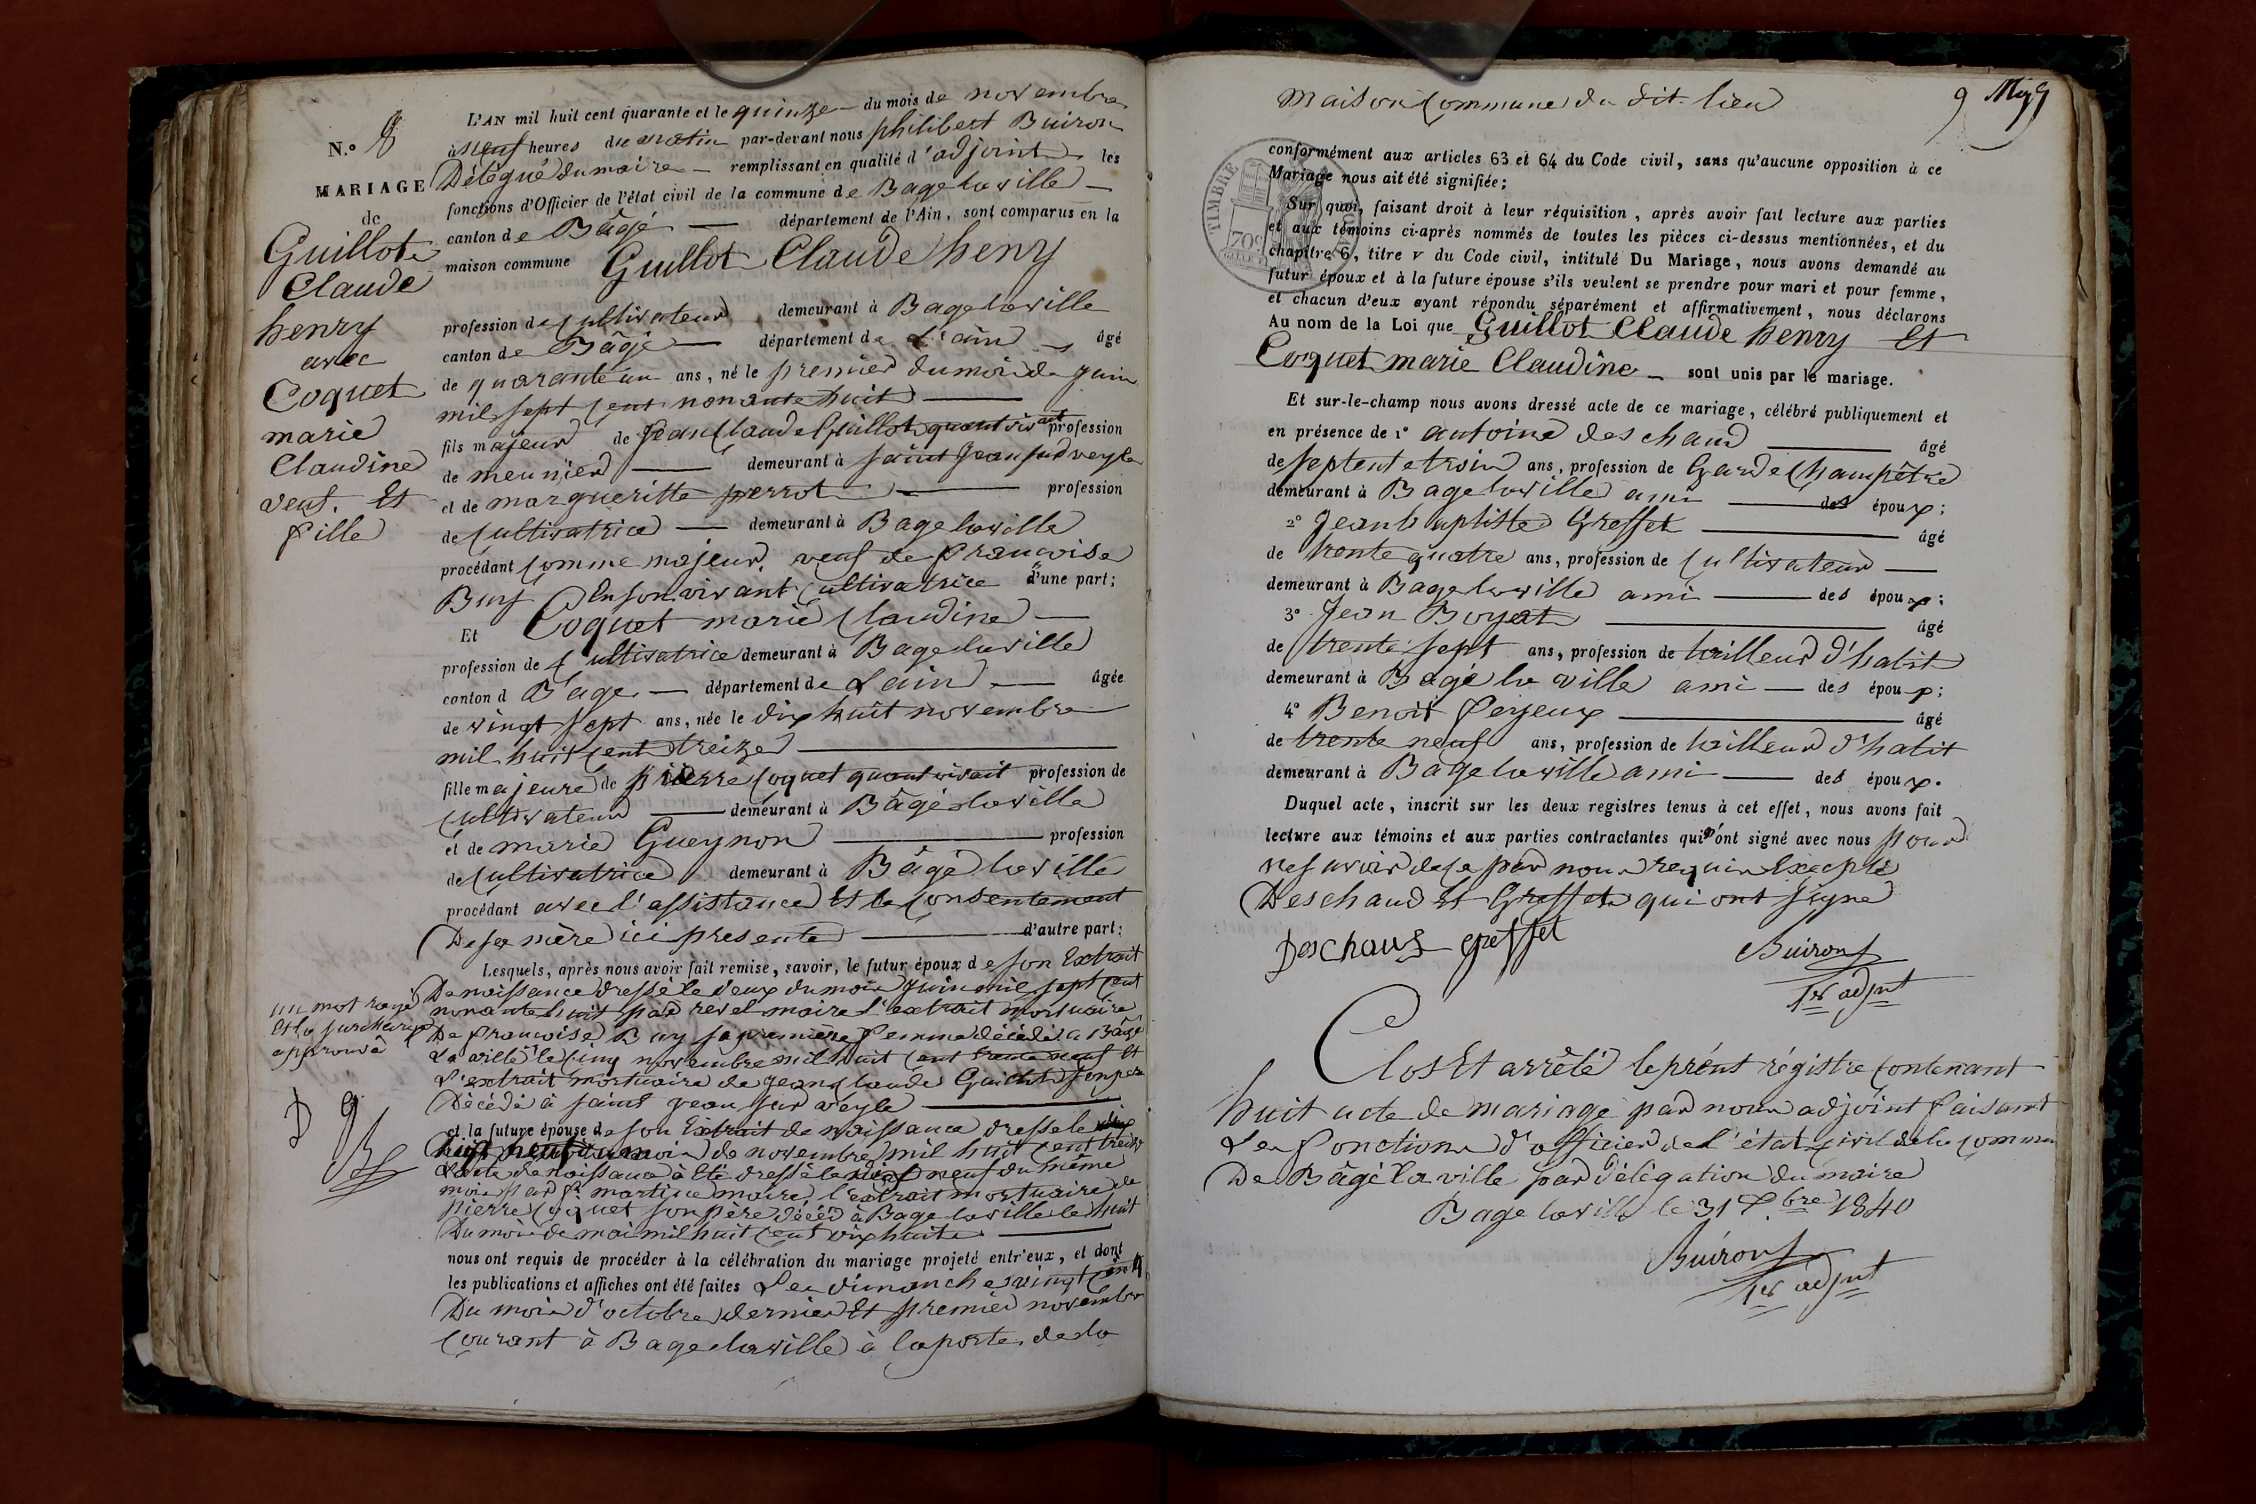 N.º 8
MARIAGE
de
Guillot
Claude
henry
avec
Coquet
marie
Claudine
veuf. Et
fille
L'AN mil huit cent quarante et le quinze du mois de novembre
à neuf heures du matin par-devant nous philibert Buiron
Délégué du maire remplissant en qualité d'adjoint les
fonctions d'Officier de l'état civil de la commune de Bage la ville
canton de Bâgé département de l'Ain, sont comparus en la
maison commune Guillot Claude heny
profession de Cultivateur demeurant à Bage la ville
canton de Bâgé département de L'ain âgé
de quarante un ans, né le premier du moi de juin
mil sept Cent nonante huit
fils majeur de Jean Claude Guillot quant vivait profession
de meunier demeurant à saint Jean sud veyle
et de margueritte perrot profession
de Cultivatrice demeurant à Bage la ville
procédant Comme majeur, veuf de francoise
Buy En son vivant Cultivatrice d'une part;
Et Coquet marie Claudine
profession de Cultivatrice demeurant à Bage la ville
canton d Bage département de Lain âgée
de vingt sept ans, née le dix huit novembre
mil huit Cent treize
fille majeure de pierre Coquet quant vivait profession de
Cultivateur demeurant à Bâgé la ville
et de marie Gueynon profession
de Cultivatrice demeurant à Bâgé la ville
procédant avec l'assistance Et le Consentement
De sa mère ici presente d'autre part;
Lesquels, après nous avoir fait remise, savoir, le futur époux de son Extrait
De naissance dressé le deux du moi Juin mil sept Cent
nonante huit par revel maire l'extrait mortuaire
De francoise Buy sa première femme décédé a Bâgé
La ville le Cinq novembre mil huit Cent trente neuf Et
L'extrait mortuaire de Jean Claude Guillot son père
Décédé à saint jean sur veyle
un mot rayé
Et la surcharge
approuvé
et la future épouse de son Extrait de naissance dressé le
neuf du moi de novembre mil huit Cent treize
L'acte de naissance à été dressé le neuf du même
moi par fr. martine maire, l'extrait mortuaire de
pierre Coquet son père décédé à Bage la ville le huit
Du moi de mai mil huit Cent dix huit
nous ont requis de procéder à la célébration du mariage projeté entr'eux, et dont
les publications et affiches ont été faites Les dimanches vingt Cinq
Du moi d'octobre dernier Et premier novembre
Courant à Bage la ville à la porte de la
9
maison Commune du dit lieu
TIMBRE
70c
conformément aux articles 63 et 64 du Code civil, sans qu'aucune opposition à ce
Mariage nous ait été signifiée;
Sur quoi, faisant droit à leur réquisition, après avoir fait lecture aux parties
et aux témoins ci-après nommés de toutes les pièces ci-dessus mentionnées, et du
chapitre 6, titre V du Code civil, intitulé Du Mariage, nous avons demandé au
futur époux et à la future épouse s'ils veulent se prendre pour mari et pour femme,
et chacun d'eux ayant répondu séparément et affirmativement, nous déclarons
Au nom de la Loi que Guillot Claude henry Et
Coquet marie Claudine sont unis par le mariage.
Et sur-le-champ nous avons dressé acte de ce mariage, célébré publiquement et
en présence de 1º antoine deschaud âgé
de septente trois ans, profession de Garde Champêtre
demeurant à Bage la ville ami des époux;
2º Jean baptiste Greffet âgé
de trente quatre ans, profession de Cultivateur
demeurant à Bage la ville ami des époux;
3º Jean Boyat âgé
de trente sept ans, profession de tailleur d'habit
demeurant à Bagé la ville ami des époux;
4º Benoit ferjeux âgé
de trente neuf ans, profession de tailleur d'habit
demeurant à Bage la ville ami des époux.
Duquel acte, inscrit sur les deux registres tenus à cet effet, nous avons fait
lecture aux témoins et aux parties contractantes qui n'ont signé avec nous pour
ne savoir de ce par nous requis Excepté
Deschaud Et Greffet qui ont signe
Deschaux greffet
Buiron
1er adjnt
Clos Et arrêté le prént régistre Contenant
huit acte de mariage par nous adjoint faisant
Les fonctions d'officier de l'état civil de la Commune
De Bâgé la ville par délégation du maire
Bage la ville le 31 Xbre 1840
Buiron
1er adjnt